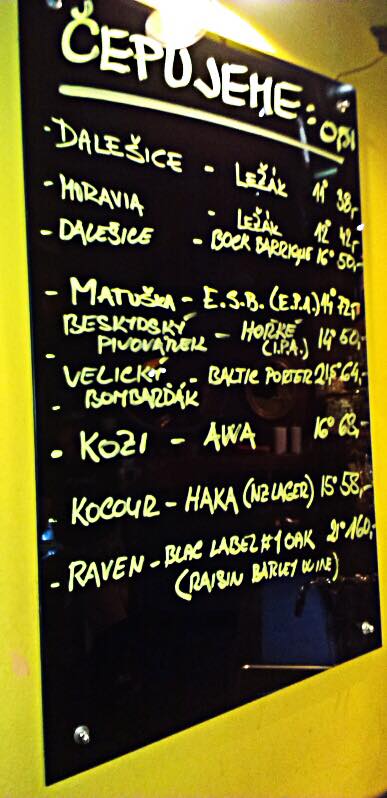 ČEPUJEME: 0,5l
- DALEŠICE - LEŽÁK 11° 38,-
- MORAVIA - LEŽÁK 12° 42,-
- DALEŠICE - BOCK BARRIQUE 16° 50,-
- MATUŠKA - E.S.B. (E.P.A.) 14°
BESKYDSKÝ - HOŘKÉ 14° 50,-
- PIVOVÁREK (I.P.A.)
VELICKÝ - BALTIC PORTER 21,5° 64,-
- BOMBARĎÁK
- KOZI - AWA 16° 68,-
- KOCOUR - HAKA (NZ LAGER) 15° 58,-
- RAVEN - BLAC LABEL #1 OAK 160,-
(RAISIN BARLEY WINE)